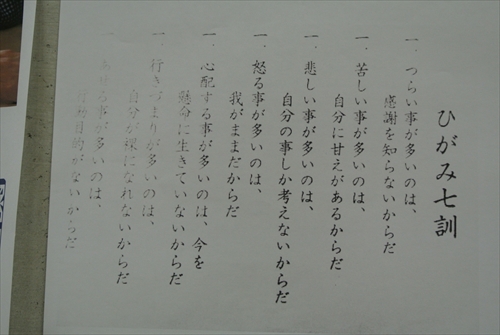 ひがみ七訓
一、つらい事が多いのは、
感謝を知らないからだ
一、苦しい事が多いのは、
自分に甘えがあるからだ
一、悲しい事が多いのは、
自分の事しか考えないからだ
一、怒る事が多いのは、
我がままだからだ
一、心配する事が多いのは、今を
懸命に生きていないからだ
一、行きづまりが多いのは、
自分が裸になれないからだ
あせる事が多いのは、
行動目的がないからだ